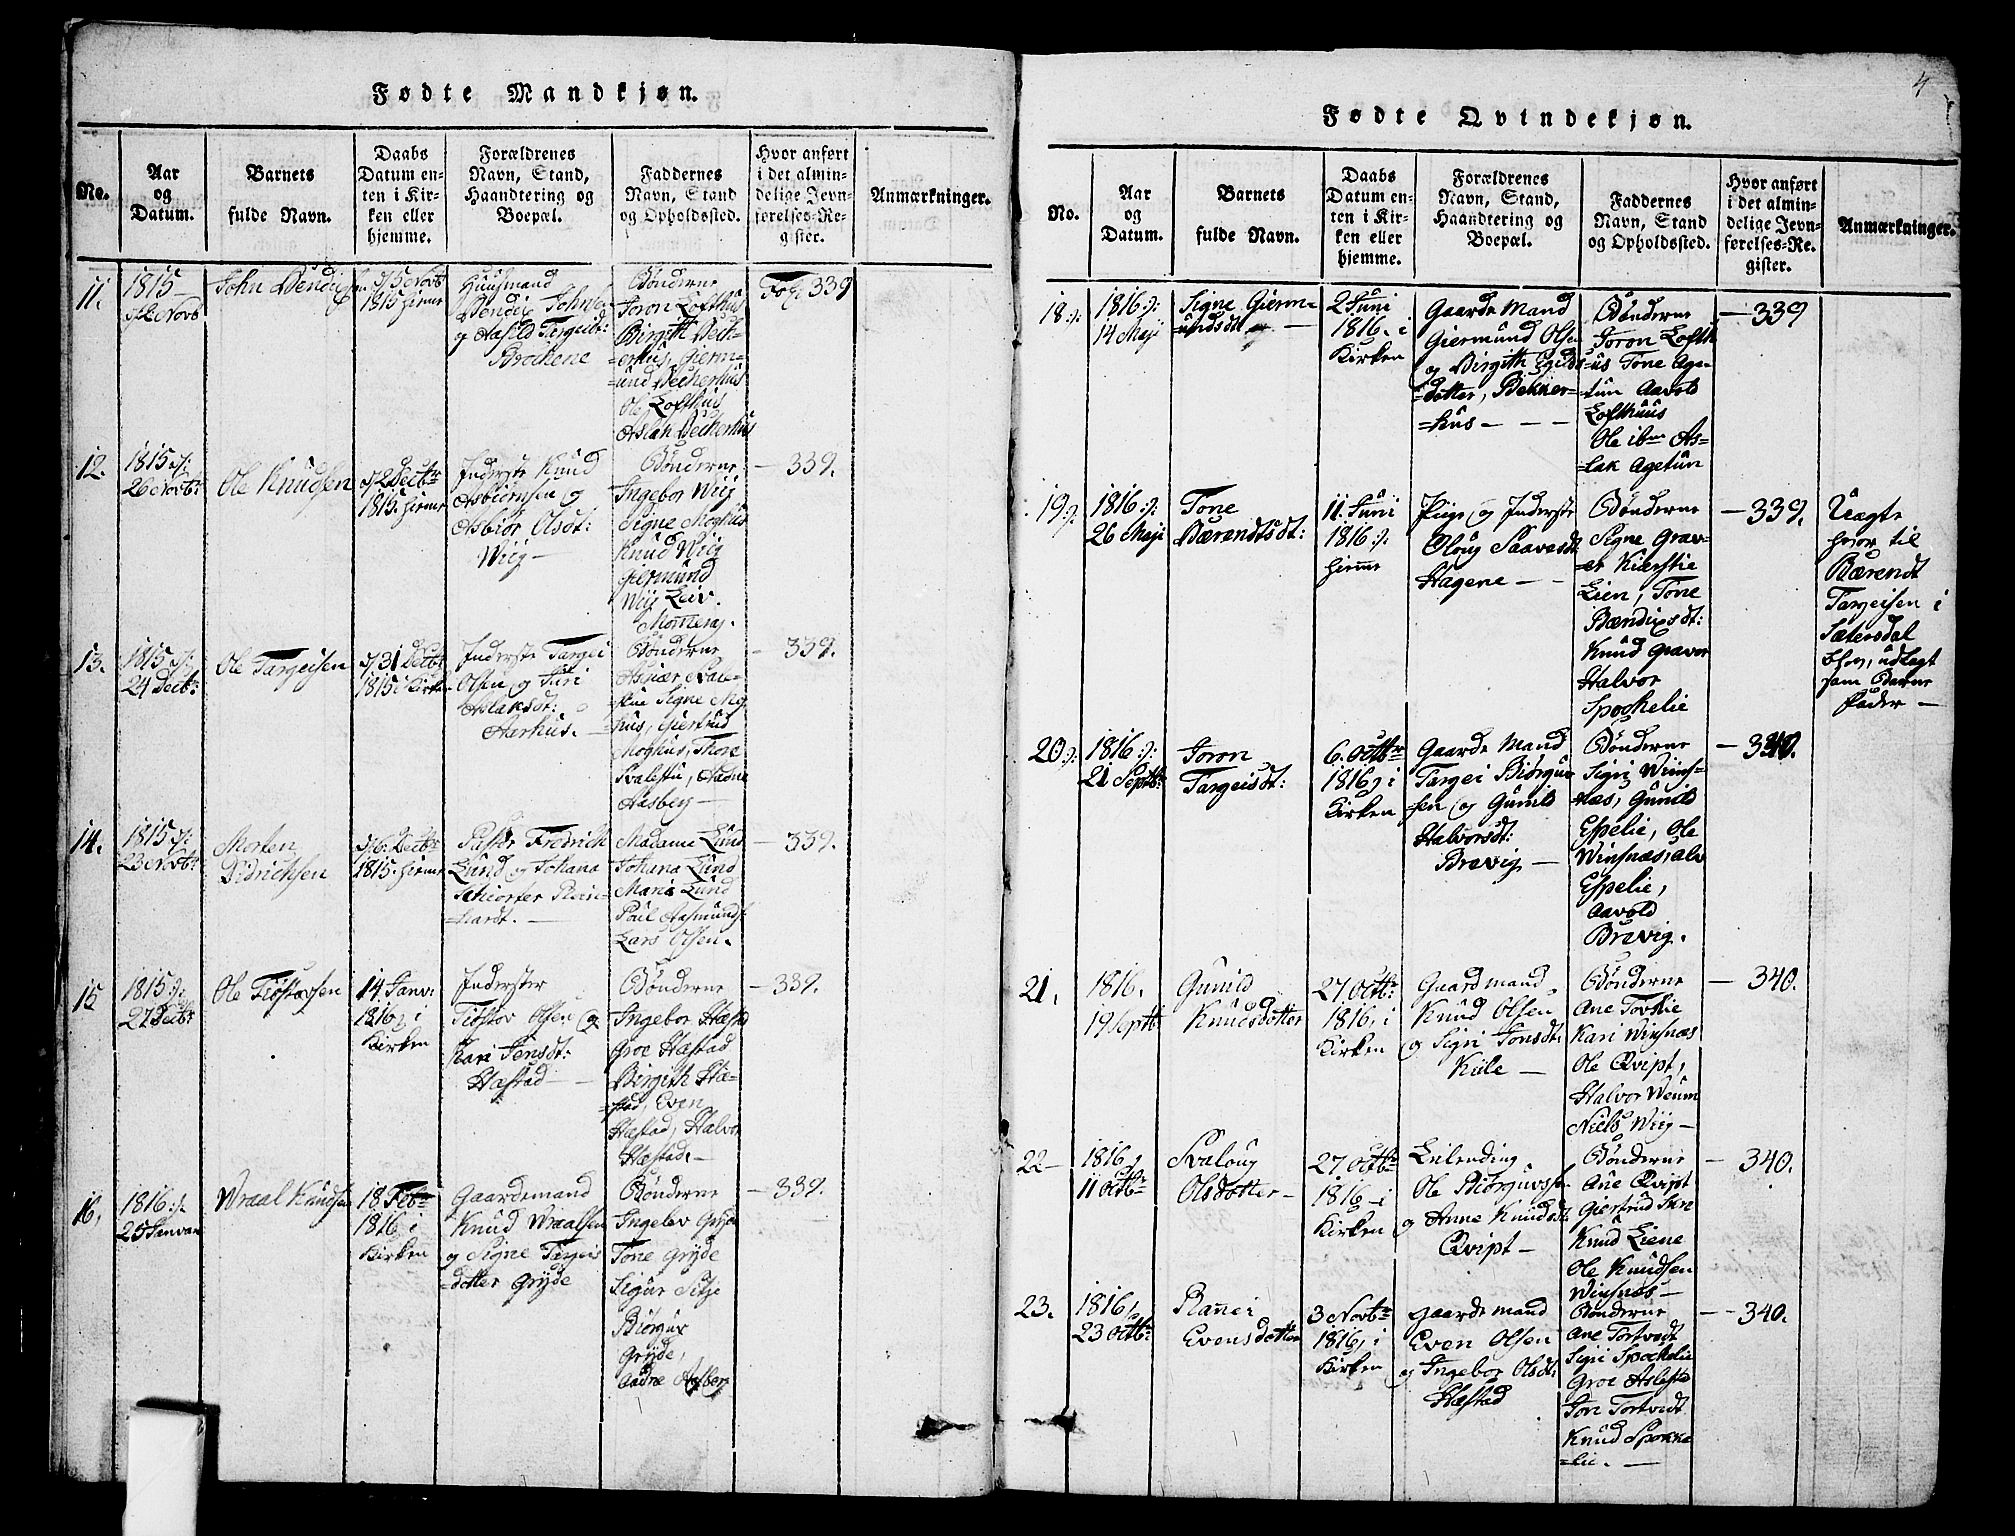 Fødte Mandkjøn.
No.
Aar
og
Datum.
Barnets
fulde Navn.
Daabs
Datum en-
ten i Kir-
ken eller
hjemme.
Forældrenes
Navn, Stand,
Haandtering og
Boepæl.
Faddernes
Navn, Stand
og Opholdssted.
Hvor anført
i det almin-
delige Jevn-
førelses-Re-
gister.
Anmærkninger.
11.
1815
Novb
John Bendixsen
5 Novb
1815 hiemme
Huusmand
Bendix Johnsen
og Aasild Targeids:
Brockene
Bønderne
Joron Lofthus
Birgith Beck-
=erhus, Gierm-
=und Beckerhus
Ole Lofthus
Aslak Beckerhus
Fol: 339
12.
1815
26 Novb:
Ole Knudsen
2 Decbr
1815 hiemme
Inderste Knud
Asbiørnsen og
Asbior Olsdt:
Wiig —
Bønderne
Ingebor Wiig
Signe Moghus
Knud Wiig
Giermund
Wiig Leiv
— 339.
13.
1815
24 Decbr:
Ole Targeisen
31 Decbr
1815 i Kirken
Inderste Targei
Olsen og Siri
Aslaksdt:
Aarhus. —
Bønderne
Svale-
stue Signe Mog
hus, Giertrud
Moghus, Thore
Svalestu, Aadne
Aasbeg —
— 339.
14.
1815
23 Novb:
Morten
Didrichsen
6 Decbr
1815 hiemme
Pastor Fredrich
Lund og Johana
Schiorter Rein-
=hardt. —
Madame Lund
Johana Lund
Maria Lund
Poul Aasmunds
Lars Olsen.
— 339.
15
1815
27 Decbr
Ole Tiostovsen
14 Janv:
1816 i
Kirken
Inderster
Tiostov Olsen og
Kari Jensdt:
Hæstad —
Bønderne
Ingebor Hæstad
Groe Hæstad
Birgith Hæ-
=stad, Even
Hæstad, Halvor
Hæstad. —
— 339.
16,
1816
25 Januar
Wraal Knudsen
18 Feb:
1816 i
Kirken
Gaardemand
Knud Wraalsen
og Signe Targeis
=dotter Gryde
Bønderne
Ingelev Gryde
Tone Gryde
Sigur
Biørgur
Gryde,
Aadne Aasbeg
— 339.
4
Fødte Qvindekjøn.
No.
Aar
og
Datum.
Barnets
fulde Navn.
Daabs
Datum en-
ten i Kir-
ken eller
hjemme.
Forældrenes
Navn, Stand,
Haandtering og
Boepæl.
Faddernes
Navn, Stand
og Opholdssted.
Hvor anført
i det almin-
delige Jevn-
førelses-Re-
gister.
Anmærkninger.
18
1816
14 Maji
Signe Gierm-
undsdt —
2 Juni
1816, i
Kirken
Gaarde Mand
Giermund Olsen
og Birgith Eguds
=dotter, Bekker-
=hus — — —
Bønderne
Joron Lofth
=us Tone Age-
=tun Aavold
Lofthuus
Ole ibm As-
=lak Agetun
— 339
19
1816
26 Maji
Tone
Bærendtsdt:
11 Juni
1816
hiemme
Pige og Inderste
Oloug Saavesdt
Hagene — —
Bønderne
Signe Grav-
=er Kierstie
Lien, Tone
Bændixsdt:
Knud Graver
Halvor
Spockelie
— 339.
Uægte
hvor til
Bærendt
Targeisen i
Sætersdal
blev, udlagt
som Barne
Fader —
20
1816
21 Septb:
Joron
Targeisdt:
6. Octbr
1816, i
Kirken
Gaarde Mand
Targei Biørgu
sen og Gunild
Halvorsdt:
Brevig —
Bønderne
Sigri Wins-
=næs, Gunild
Espelie, Ole
Winsnæs, Alv
Espelie,
Aavold
Brevig.
— 340.
21,
1816.
19 Septb
Gunild
Knudsdotter
27 Octb:
1816, i
Kirken
Gaardmand
Knud Olsen
og Sigri Jonsdt:
Kiile —
Bønderne
Ane Tovslie
Kari Winsnæs
Ole Qvipt,
Halvor Weum
Niels Wiig —
— 340.
22 —
1816,
11 Octbr
Svaloug
Olsdotter —
27 Octb
1816 — i
Kirken
Leilending
Ole Biørguvs
og Anne Knudsdt
Qvipt —
Bønderne
Ane Qvipt
Giertrud
Knud Liene
Ole Knudsen
Winsnæs —
— 340.
23.
1816,
23 Octb:
Ranei
Evensdotter
3 Novbr
1816, i
Kirken
Gaarde mand
Even Olsen
og Ingebor Olsdt:
Hæstad
Bønderne
Ane Tortvedt
Sigri Spockelie
Groe Aslestad
Jon Tortvedt
Knud Spokke
=lie. —
— 340.